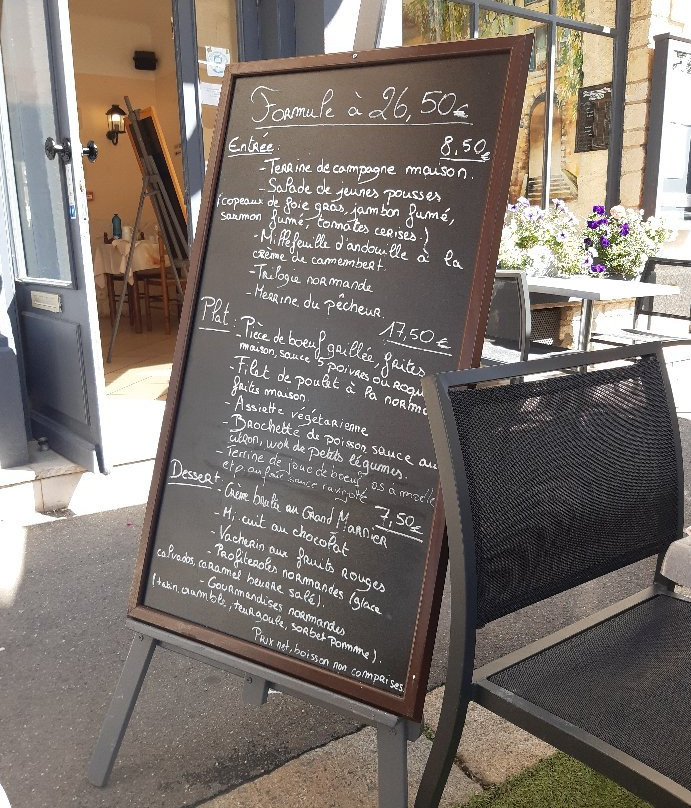 Formule à 26,50€
Entrée : 8,50€
- Terrine de campagne maison.
- Salade de jeunes pousses
(copeaux de foie gras, jambon fumé,
saumon fumé, tomates cerises.)
- Millefeuille d'andouille à la
crème de camembert.
- Trilogie normande
- Merrine du pêcheur.
Plat : 17,50€
- Pièce de boeuf grillée frites
maison, sauce 5 poivres ou roqu
- Filet de poulet à la norma
frites maison
- Assiette végétarienne
- Brochette de poisson sauce au
citron, wok de petits légumes.
- Terrine de joue de boeuf, os à moelle
et sauce ravigote
Dessert 7,50€
- Crème brulée au Grand MARNIER
- Mi cuit au chocolat
- Vacherin aux fruits rouges
- Profiteroles normandes (glace
calvados, caramel beurre salé).
- Gourmandises normandes
(tatin, crumble, teurgoule, sorbet pomme).
Prix net, boisson non comprises.